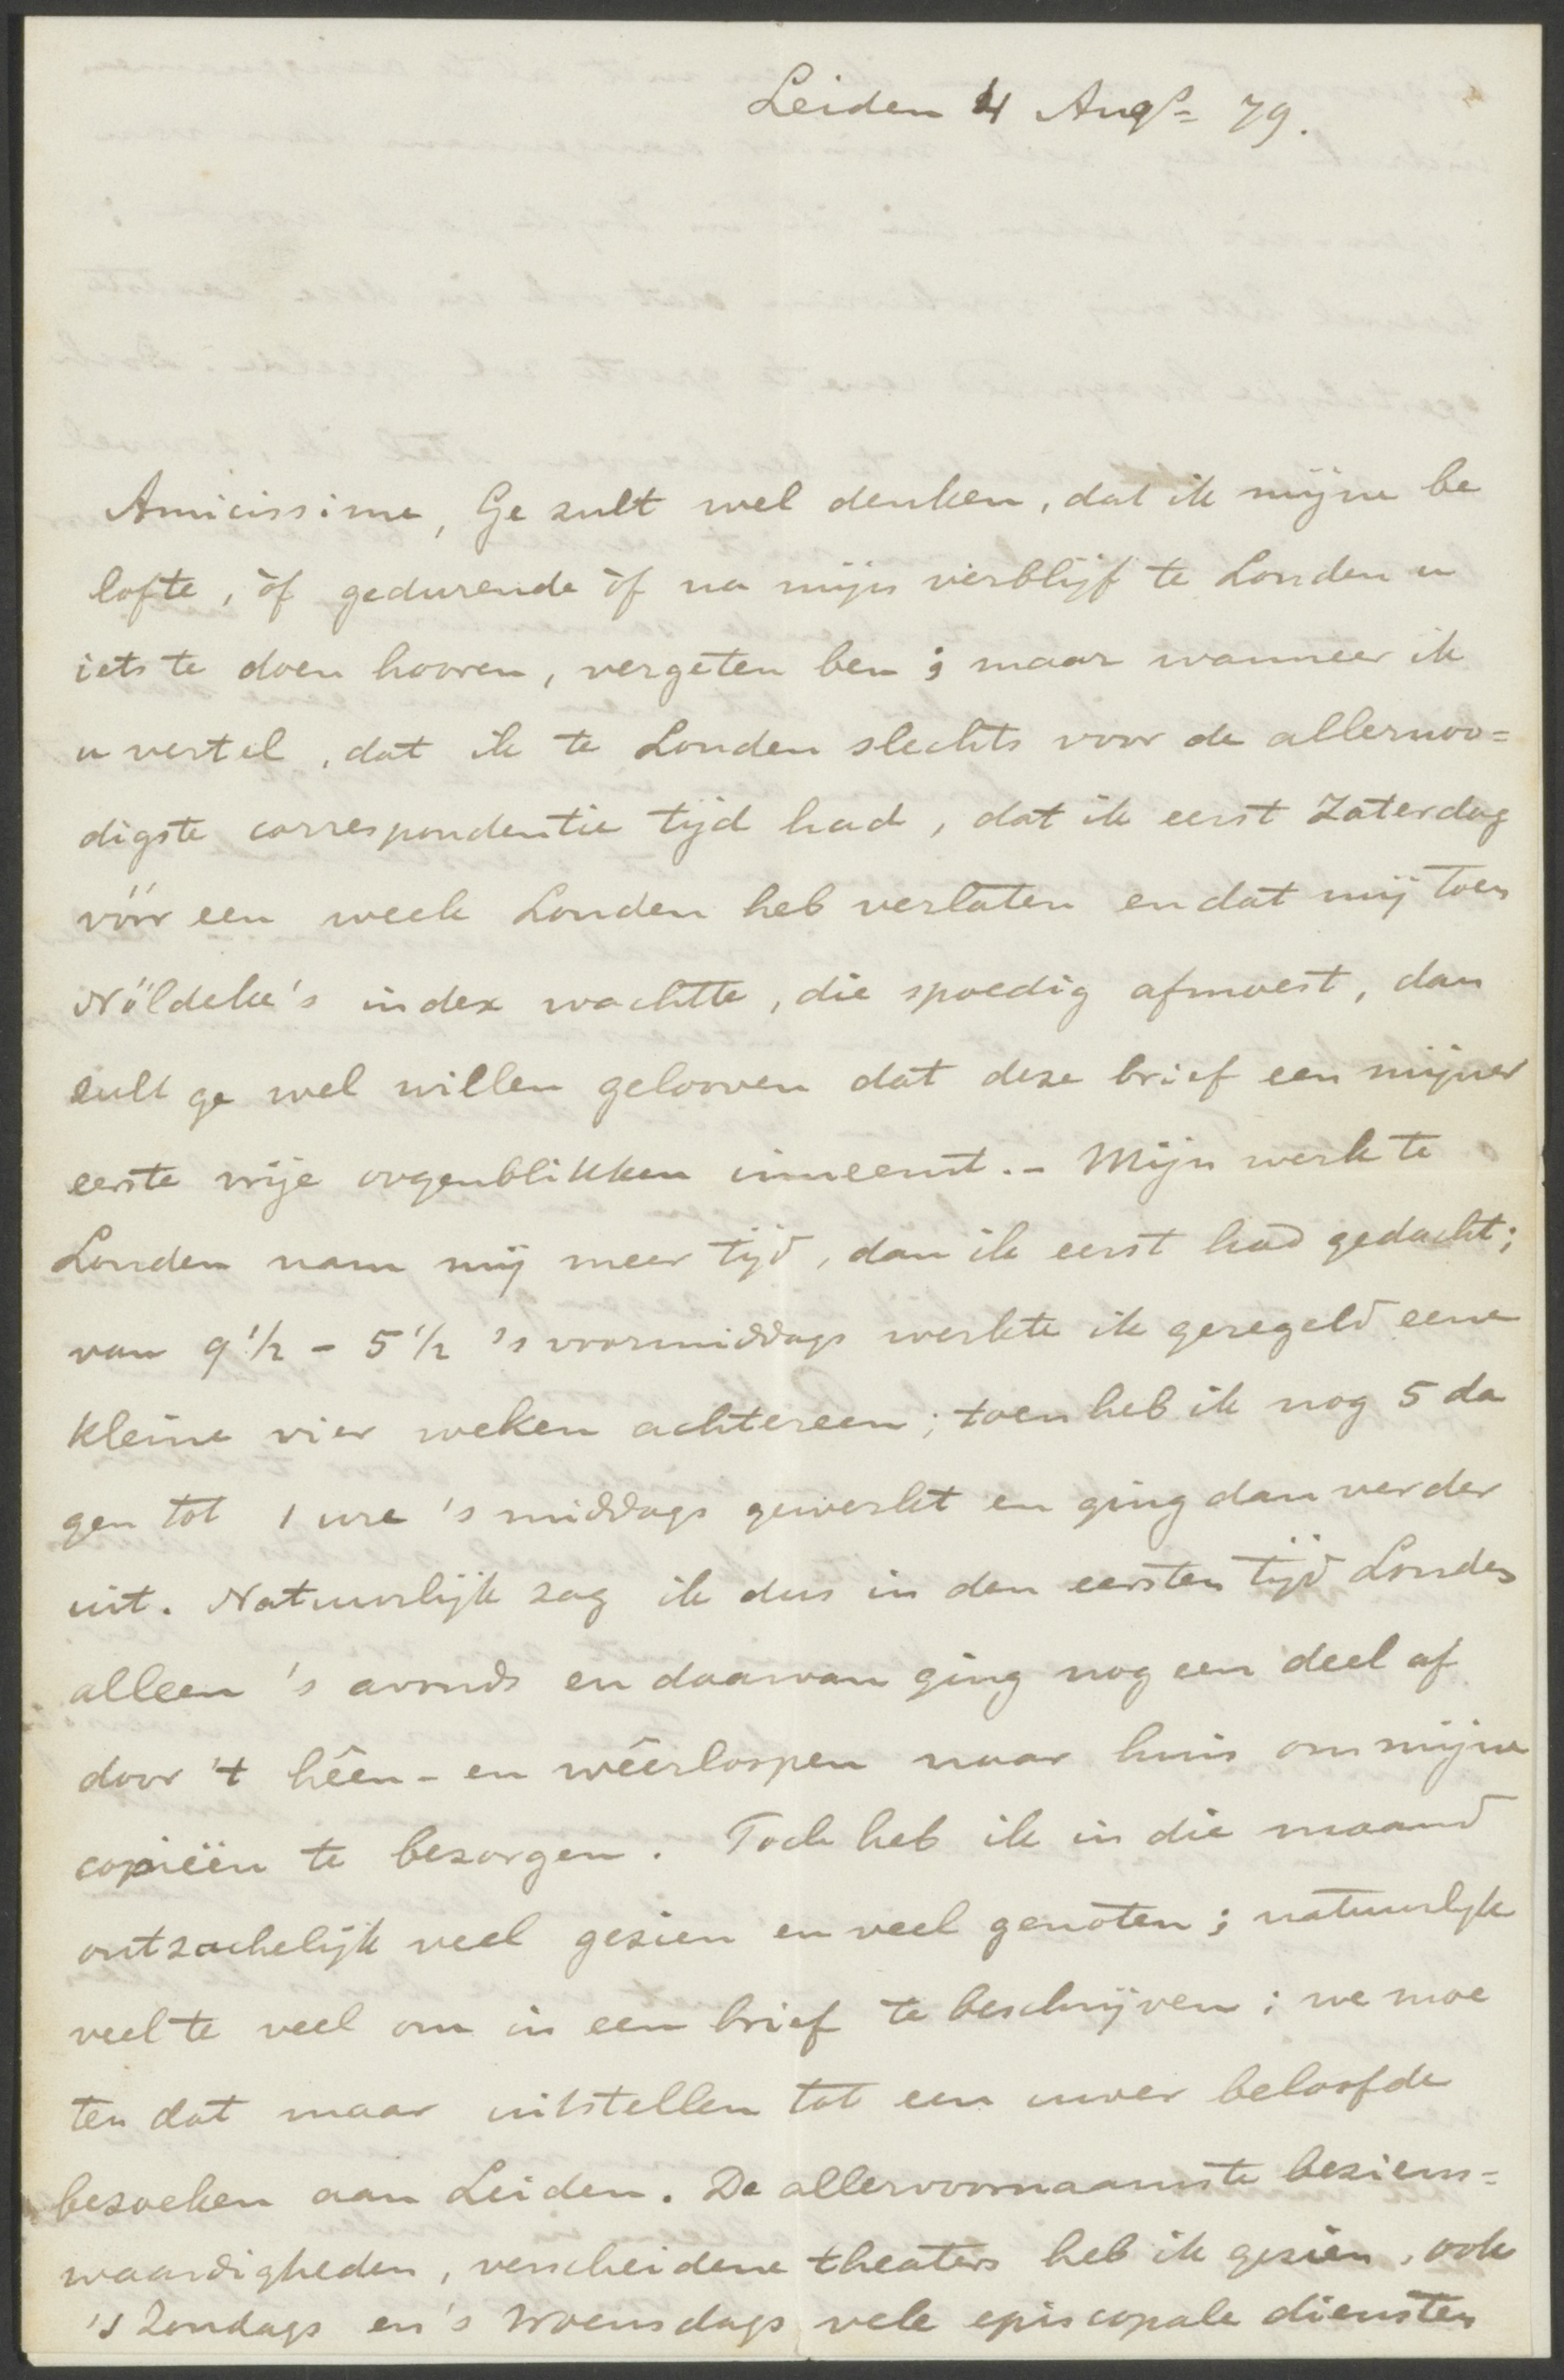 Leiden 4 Augs= 79.
Amicissime, Ge zult wel denken, dat ik mijne be
lofte, òf gedurende òf na mijn verblijf te Londen u
iets te doen hooren, vergeten ben; maar wanneer ik
u vertel, dat ik te Londen slechts voor de allernoo=
digste correspondentie tijd had, dat ik eerst Zaterdag
vóór een week Londen heb verlaten en dat mij toen
Nöldeke's index wachtte, die spoedig afmoest, dan
zult ge wel willen gelooven dat deze brief een mijner
eerste vrije oogenblikken inneemt. – Mijn werk te
Londen nam mij meer tijd, dan ik eerst had gedacht;
van 9 1/2 – 5 1/2 's voormiddags werkte ik geregeld eene
kleine vier weken achtereen; toen heb ik nog 5 da
gen tot 1 ure 's middags gewerkt en ging dan verder
uit. Natuurlijk zag ik dus in den eersten tijd Londen
alleen 's avonds en daarvan ging nog een deel af
door 't hêen- en wêerloopen naar huis om mijne
copieën te bezorgen. Toch heb ik in die maand
ontzachelijk veel gezien en veel genoten; natuurlijk
veel te veel om in een brief te beschrijven; we moe
ten dat maar uitstellen tot een uwer beloofde
bezoeken aan Leiden. De allervoornaamste beziens=
waardigheden, verscheidene theaters heb ik gezien, ook
's Zondags en 's Woensdags vele episcopale diensten